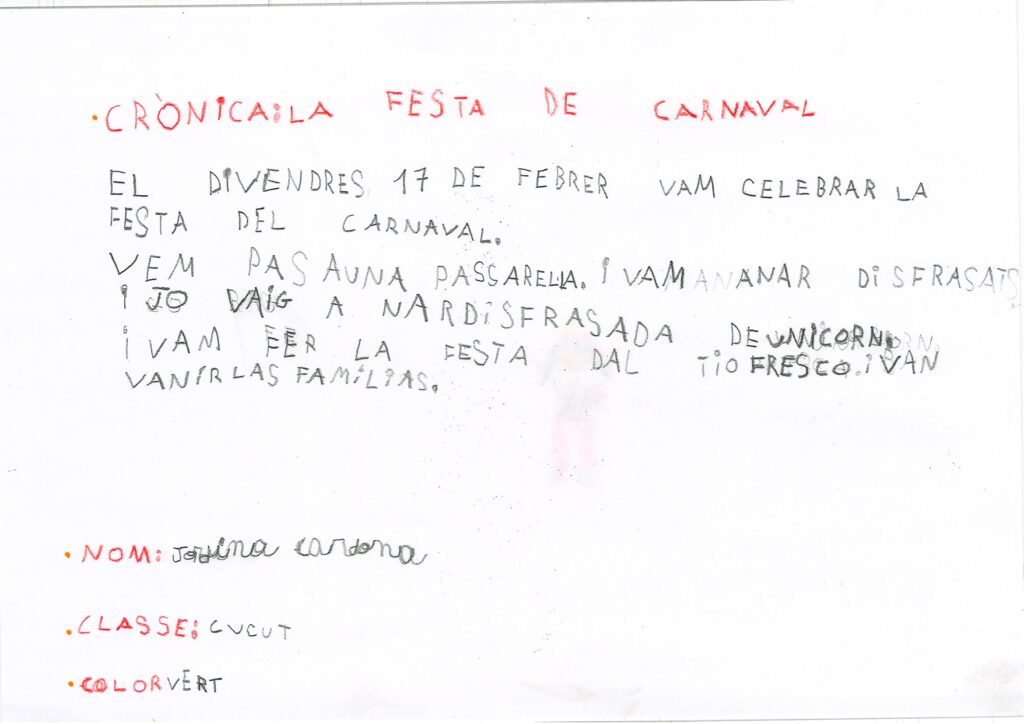 ·CRÒNICA:LA FESTA DE CARNAVAL
EL DIVENDRES 17 DE FEBRER VAM CELEBRAR LA
FESTA DEL CARNAVAL.
VEM PASAUNA PASCARELIA. I VAM ANANAR DISFRASATS
I JO VAIG A NARDISFRASADA DE UNICORN.
I VAM FER LA FESTA DAL TIO FRESCO. I VAN
VANÍR LAS FAMÍLIAS.
·NOM: cardona
·CLASSE: CUCUT
·COLOR VERT